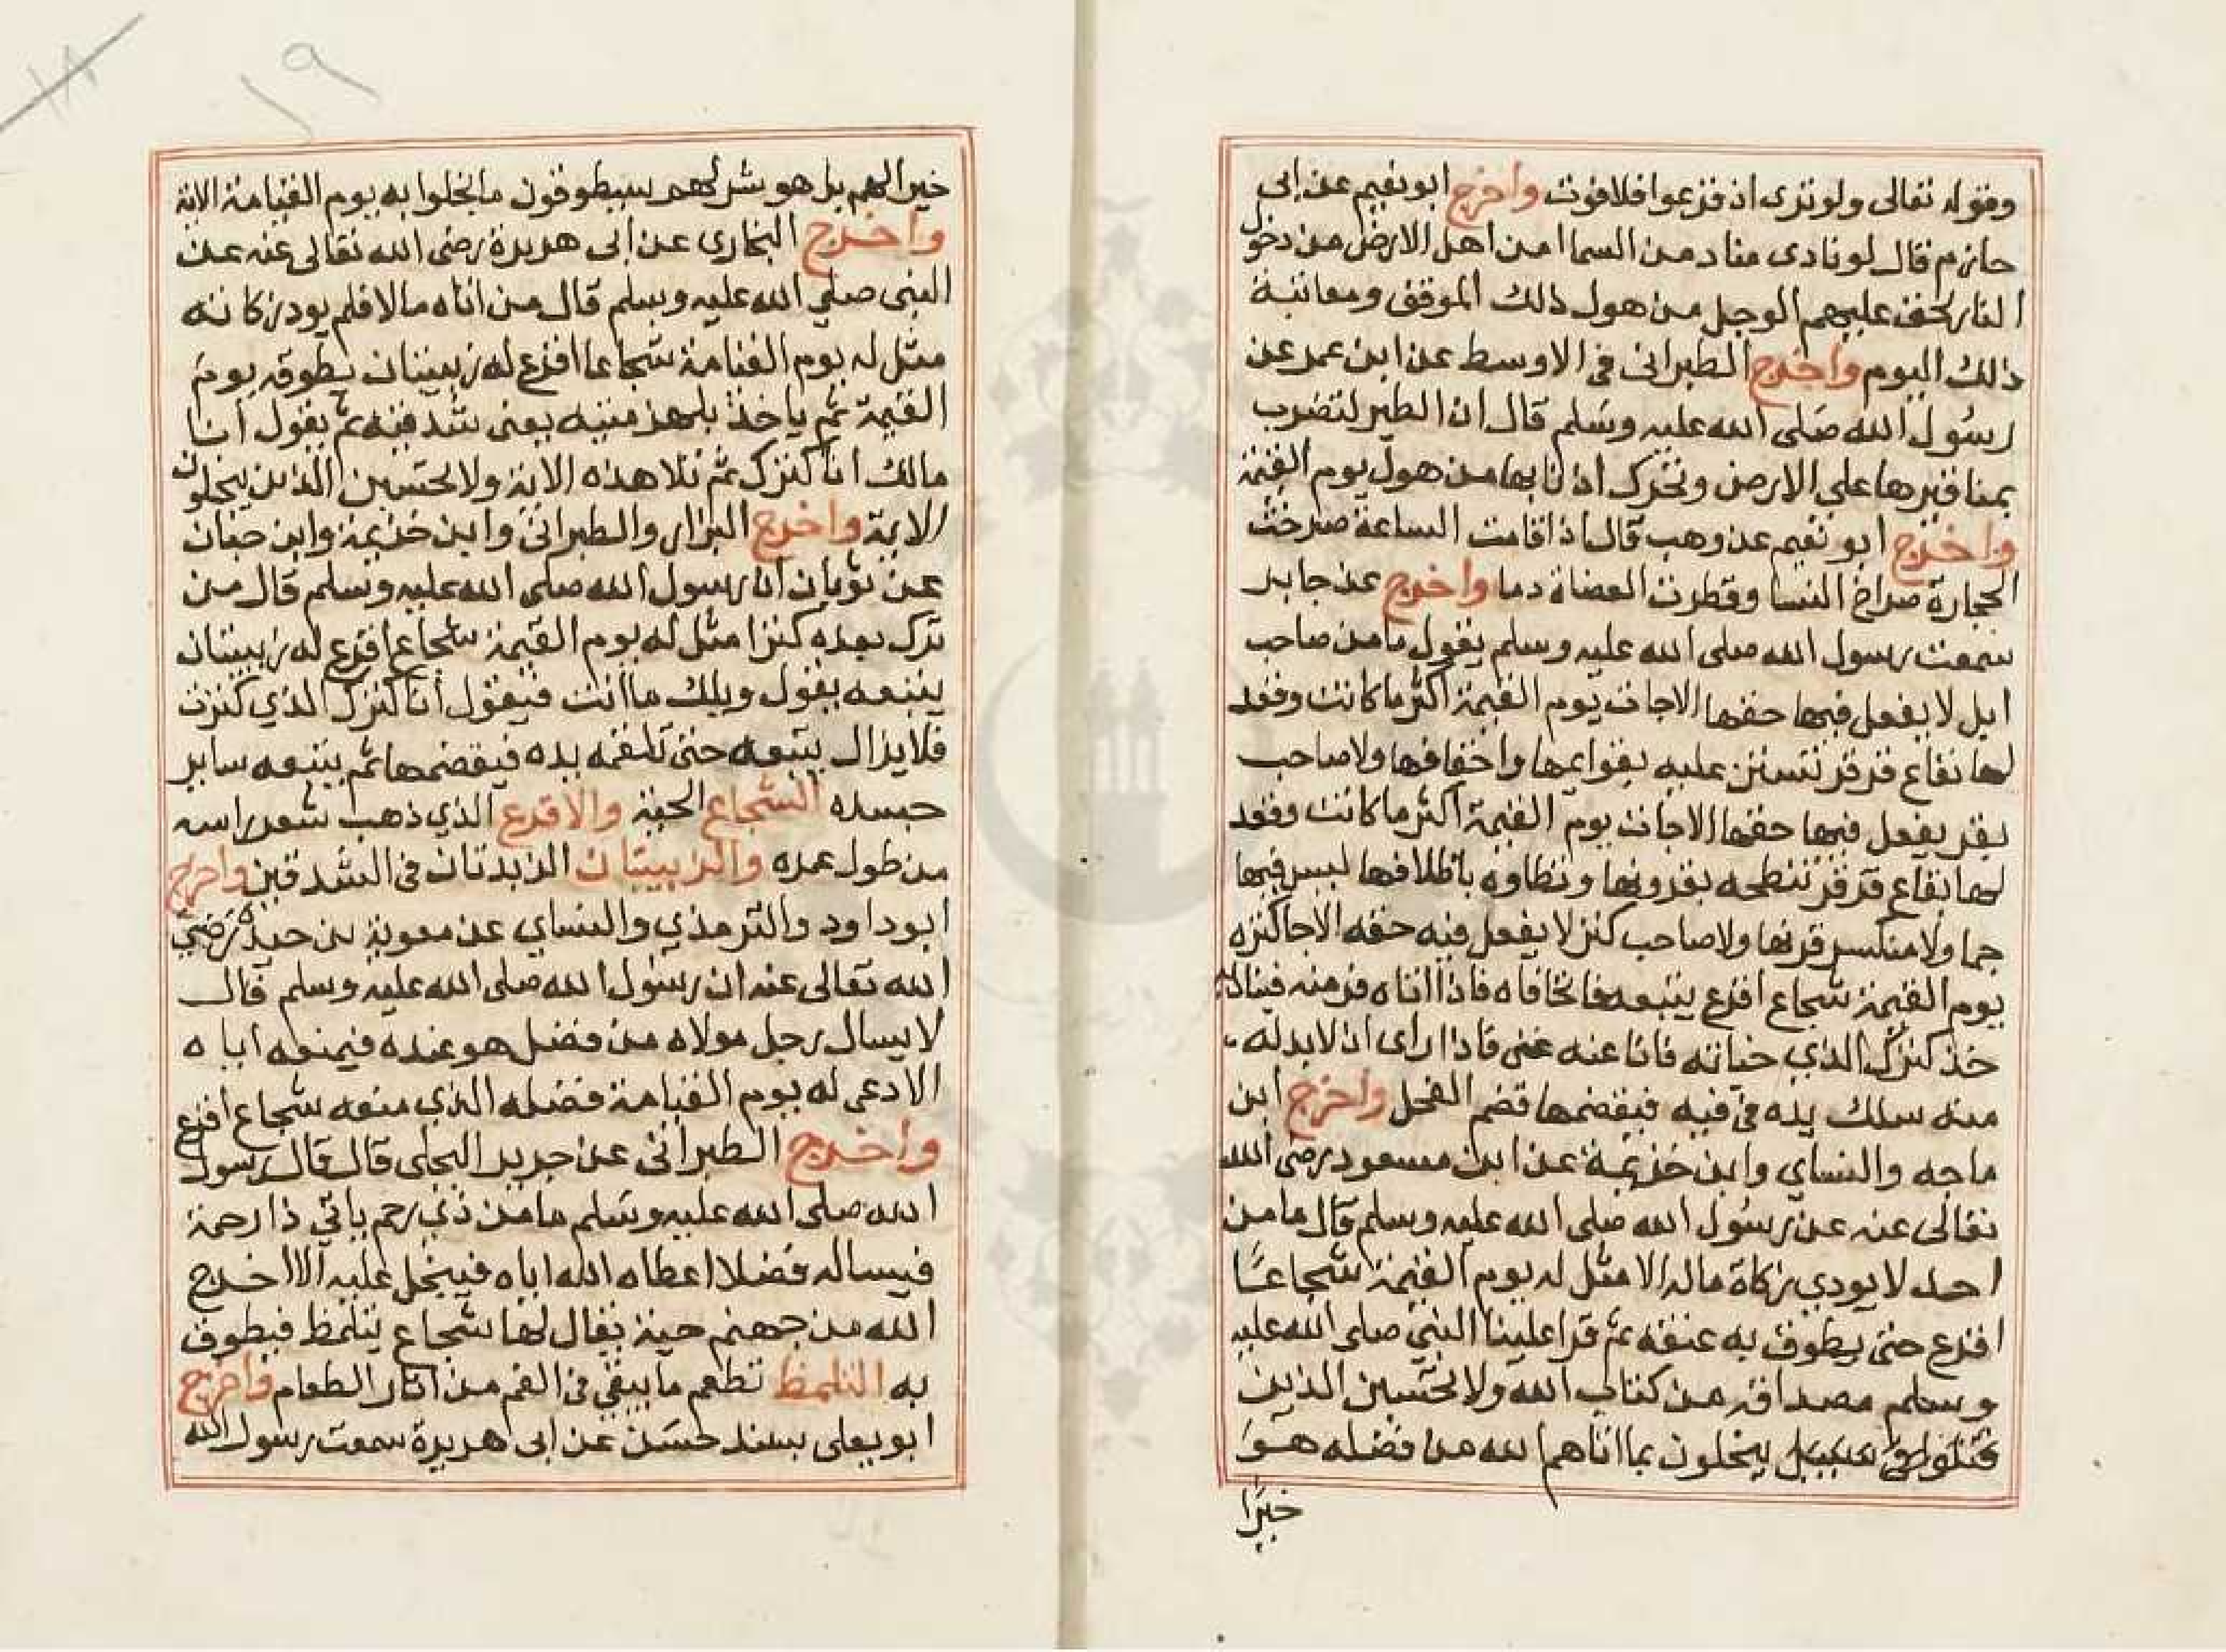 وقوله تعالى ولو ترى اذ فزعوا فلا فوت واخرج ابو نعيم عن ابى
حازم قال لو نادى مناد من السما امن اهل الارض من دخول
النار لحق عليهم الوجل من هول ذلك الموقف ومعاينة
ذلك اليوم واخرج الطبرانى فى الاوسط عن ابن عمر عن
رسول الله صلى الله عليه وسلم قال ان الطير لتضرب
بمناقيرها على الارض وتحرك اذنابها من هول يوم القيمة
واخرج ابو نعيم عن وهب قال اذا قامت الساعة صرخت
الحجارة صراخ النسا وقطرت العضاة دما واخرج عن جابر
سمعت رسول الله صلى الله عليه وسلم يقول ما من صاحب
ابل لا يفعل فيها حقها الا جات يوم القيمة اكثر ما كانت وقعد
لها بقاع قرقر تستن عليه بقوايمها واخفافها ولا صاحب
بقر يفعل فيها حقها الا جات يوم القيمة اكثر ما كانت وقعد
لها بقاع قرقر تنطحه بقرونها وتطاوه باظلافها ليس فيها
جما ولا منكسر قرنها ولا صاحب كنز لا يفعل فيه حقه الا جا كنزه
يوم القيمة شجاع اقرع يتبعه فاتحا فاه فاذا اتاه فر منه فيناديه
خذ كنزك الذي خباته فانا عنه غنى فاذا راى ان لا بد له
منه سلك يده فى فيه فيقضمها قضم الفحل واخرج ابن
ماجه والنساي وابن خزيمة عن ابن مسعود رضى الله
تعالى عنه عن رسول الله صلى الله عليه وسلم قال ما من
احد لا يودي زكاة ماله الا مثل له يوم القيمة شجاعا
اقرع حتى يطوق به عنقه ثم قرا علينا النبي صلى الله عليه
وسلم مصداقه من كتاب الله ولا تحسبن الذين
يبخلون بما اتاهم الله من فضله هو
خيرا
١٩
خيرا لهم بل هو شر لهم سيطوقون ما بخلوا به يوم القيامة الاية
واخرج البخاري عن ابى هريرة رضى الله تعالى عنه عن
النبى صلى الله عليه وسلم قال من اتاه مالا فلم يود زكاته
مثل له يوم القيامة شجاعا اقرع له زبيبتان يطوقه يوم
القيمة ثم ياخذ بلهزمتيه يعنى شدقيه ثم يقول انا
مالك انا كنزك ثم تلا هذه الاية ولا تحسبن الذين يبخلون
الاية واخرج البزار والطبرانى وابن خزيمة وابن حبان
عن ثوبان ان رسول الله صلى الله عليه وسلم قال من
ترك بعده كنزا مثل له يوم القيمة شجاع اقرع له زبيبتان
يتبعه يقول ويلك ما انت فيقول انا كنزك الذي كنزت
فلا يزال يتبعه حتى تلقمه يده فيقضمها ثم يتبعه ساير
جسده الشجاع الحية والاقرع الذي ذهب شعر راسه
من طول عمره والزبيبتان الزبدتان فى الشدقين واخرج
ابو داود والترمذي والنساي عن معوية بن حيدة رضي
الله تعالى عنه ان رسول الله صلى الله عليه وسلم قال
لا يسال رجل مولاه من فضل هو عنده فيمنعه اياه
الا دعى له يوم القيامة فضله الذي منعه شجاع اقرع
واخرج الطبرانى عن جرير البجلى قال قال رسول
الله صلى الله عليه وسلم ما من ذي رحم ياتي ذا رحمة
فيساله فضلا اعطاه الله اياه فيبخل عليه الا اخرج
الله من جهنم حية يقال لها شجاع يتلمظ فيطوق
به التلمظ تطعم ما يبقى فى الفم من اثار الطعام واخرج
ابو يعلى بسند حسن عن ابى هريرة سمعت رسول الله